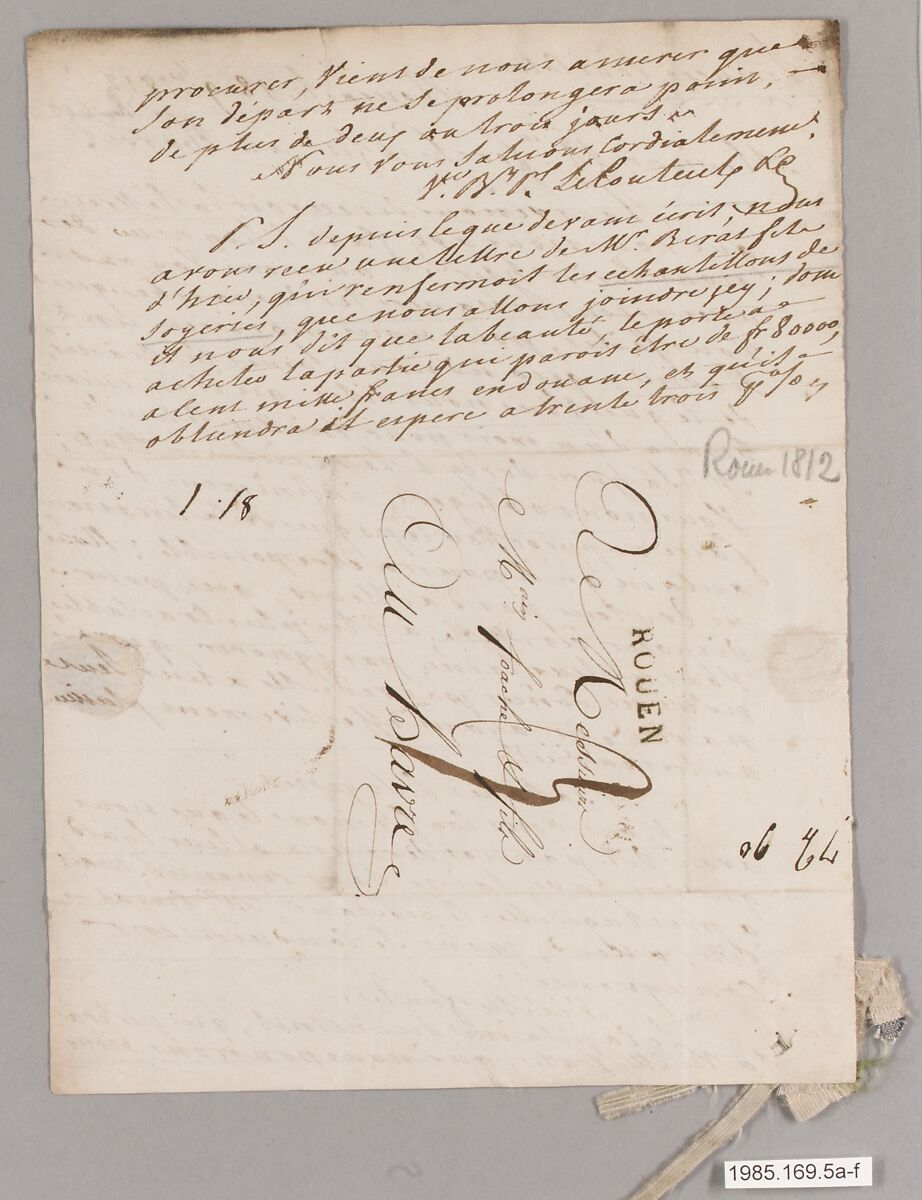 procurer, vient de nous assurer que
son départ ne se prolongera point,
de plus de deux ou trois jours
Nous vous saluons Cordialement.
LeCouteulx & Co
P. S. depuis ce que devant écrit, nous
avons reçu une lettre de Mr. Berat fils
d'hier, qui renfermoit les echantillons de
soyeries, que nous allons joindre icy; dont
il nous dit que la beauté, le porte a
acheter la partie que parois être de fr 80000,
a Cent mille francs en douane, et qu'il
obtiendra il espere a trente trois p % 
Rouen 1812
1. 18
ROUEN
A Messieurs
Mein Foache & fils
Au Havre
1985.169.5a-f